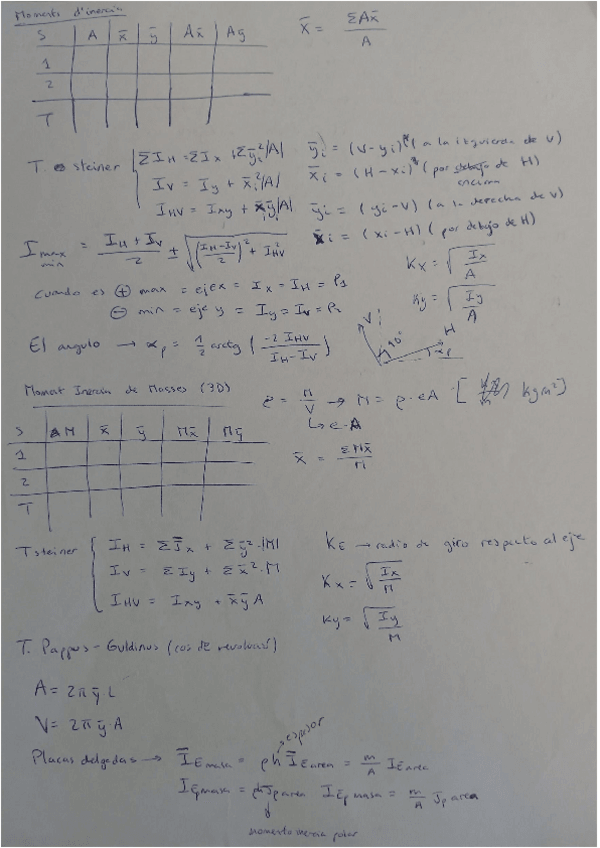 Moments d'inercia
S A x̄ ȳ Ax̄ Aȳ
1
2
T
x̄ = ΣAx̄ / A
T. steiner { ΣI_H = ΣI_x + Σȳ_i²|A|
I_V = I_y + x̄_i²|A|
I_HV = I_xy + x̄_i ȳ_i|A|
ȳ_i = (V-y_i) (a la izquierda de V)
x̄_i = (H-x_i) (por debajo encima de H)
ȳ_i = (y_i-V) (a la derecha de V)
x̄_i = (x_i-H) (por debajo de H)
I max min = (I_H + I_V)/2 ± √(((I_H-I_V)/2)² + I_HV²)
K_x = √(I_x/A)
K_y = √(I_y/A)
Cuando es ⊕ max = eje x = I_x = I_H = P_1
⊖ min = eje y = I_y = I_V = P_2
El angulo → α_p = 1/2 arctg (-2 I_HV / (I_H - I_V))
V 90° H α_p
Moment Inercia de Masses (3D)
ρ = M/V → M = ρ·eA [kg m²]
↳ e·A
S M x̄ ȳ Mx̄ Mȳ
1
2
T
x̄ = ΣMx̄ / M
T steiner { I_H = ΣĪ_x + Σȳ²·|M|
I_V = ΣI_y + Σx̄²·M
I_HV = I_xy + x̄ȳA
K_E → radio de giro respecto al eje
K_x = √(I_x/M)
K_y = √(I_y/M)
T. Pappus-Guldinus (cos de revolució)
A = 2πȳ·L
V = 2πȳ·A
Placas delgadas → Ī_E masa = ρh Ī_E area = m/A I_E area
espesor
I_Ep masa = ρh J_p area I_Ep masa = m/A J_p area
momento inercia polar